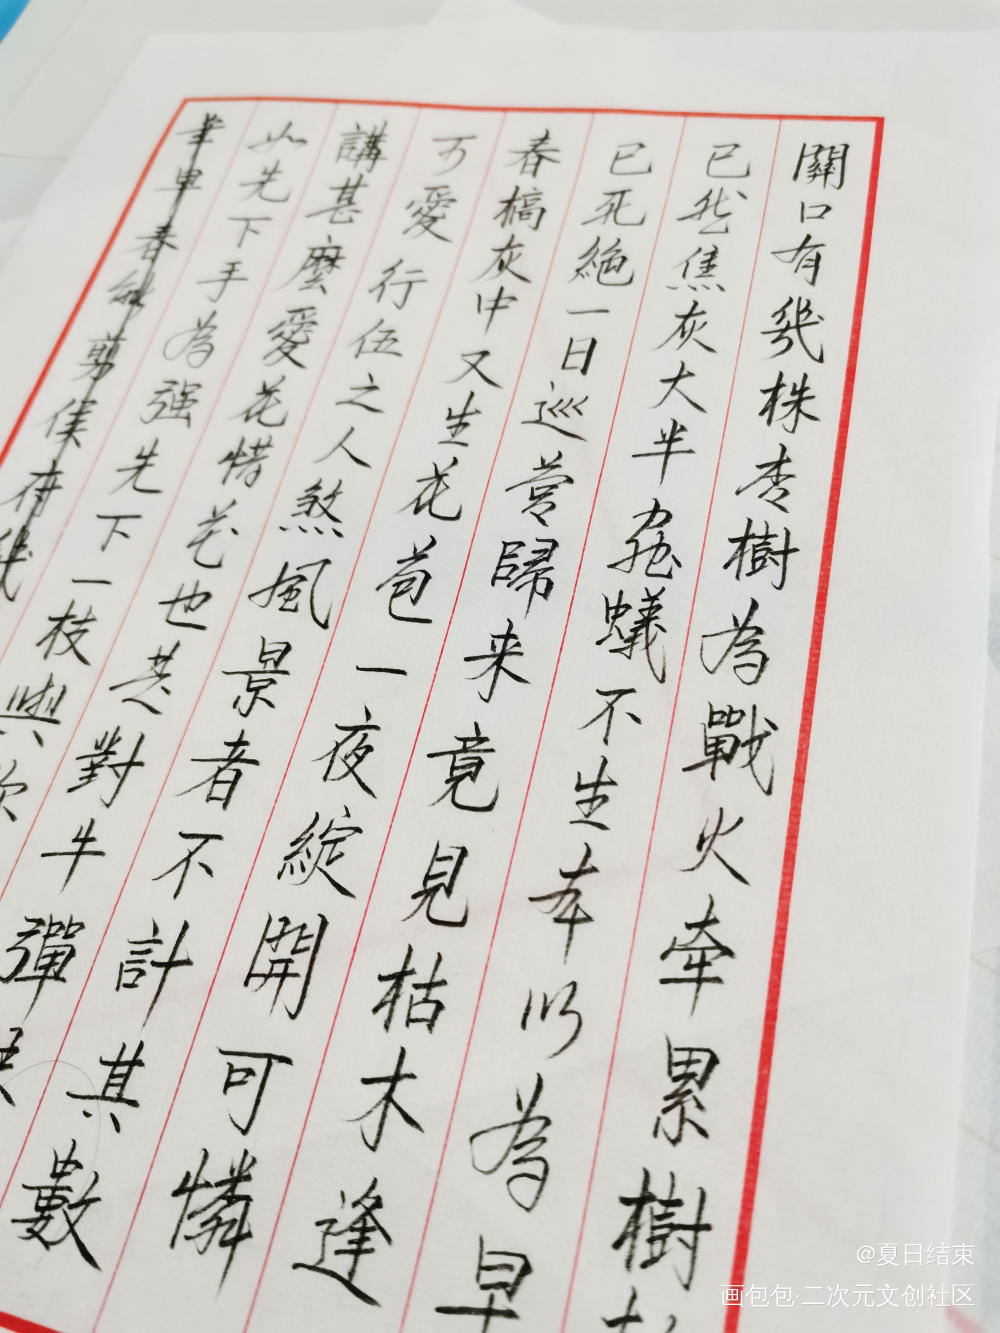 關口有幾株杏樹為戰火牽累樹
已然焦灰大半蟻不生本以為早
已死絕一日巡營歸来竟見枯木逢
春槁灰中又生花苞一夜綻開可憐
可愛行伍之人煞風景者不計其數
講甚麼愛花惜花也是對牛彈
如先下手為强先下一枝與
春 剪 幾
@夏日结束
画包包·二次元文创社区